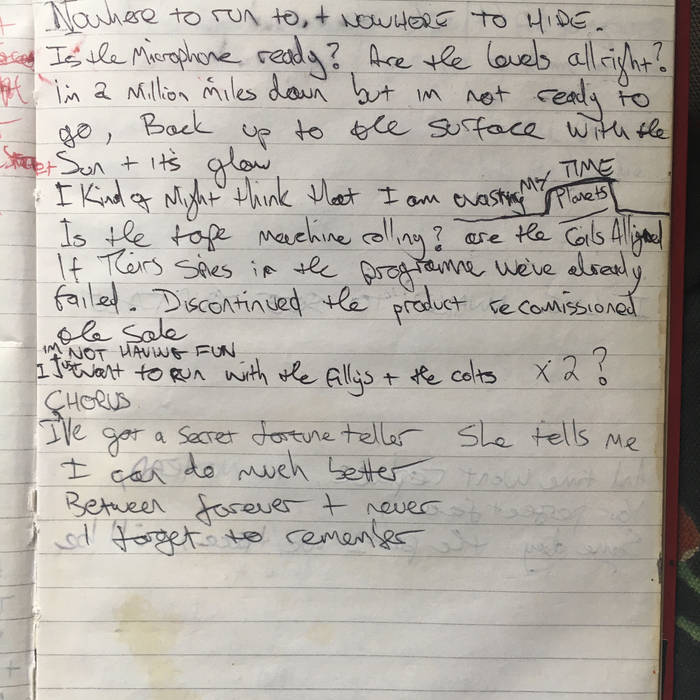 Nowhere to run to, + NOWHERE TO HIDE.
Is the Microphone ready? Are the levels allright?
I'm 2 Million miles down but im not ready to
go, Back up to the surface with the
Sun + it's glow
TIME
I Kind of Might think that I am wasting MY Planets
Is the tape machine rolling? are the Coils Alligned
If Theirs Spies in the programme we've already
failed. Discontinued the product recomissioned
the Sale
I'm NOT HAVING FUN
I Just Want to RUN with the fillys + the colts x 2 ?
CHORUS
I've got a Secret fortune teller She tells me
I can do much better
Between forever + never
I forget to remember